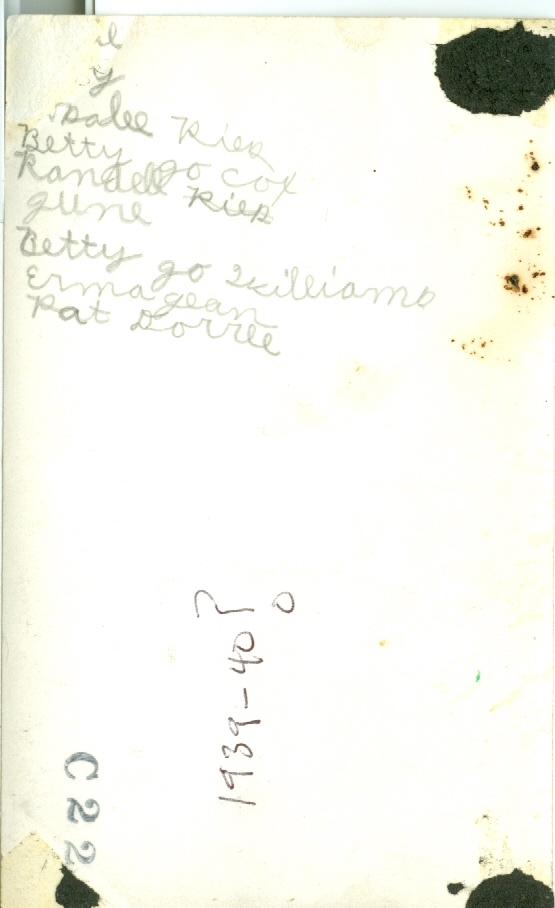 l
y
Dalee Kier
Betty go Cox
Randell Kier
June
Betty go Williams
Erma gean
Pat Dorrle
1939-40?
C22